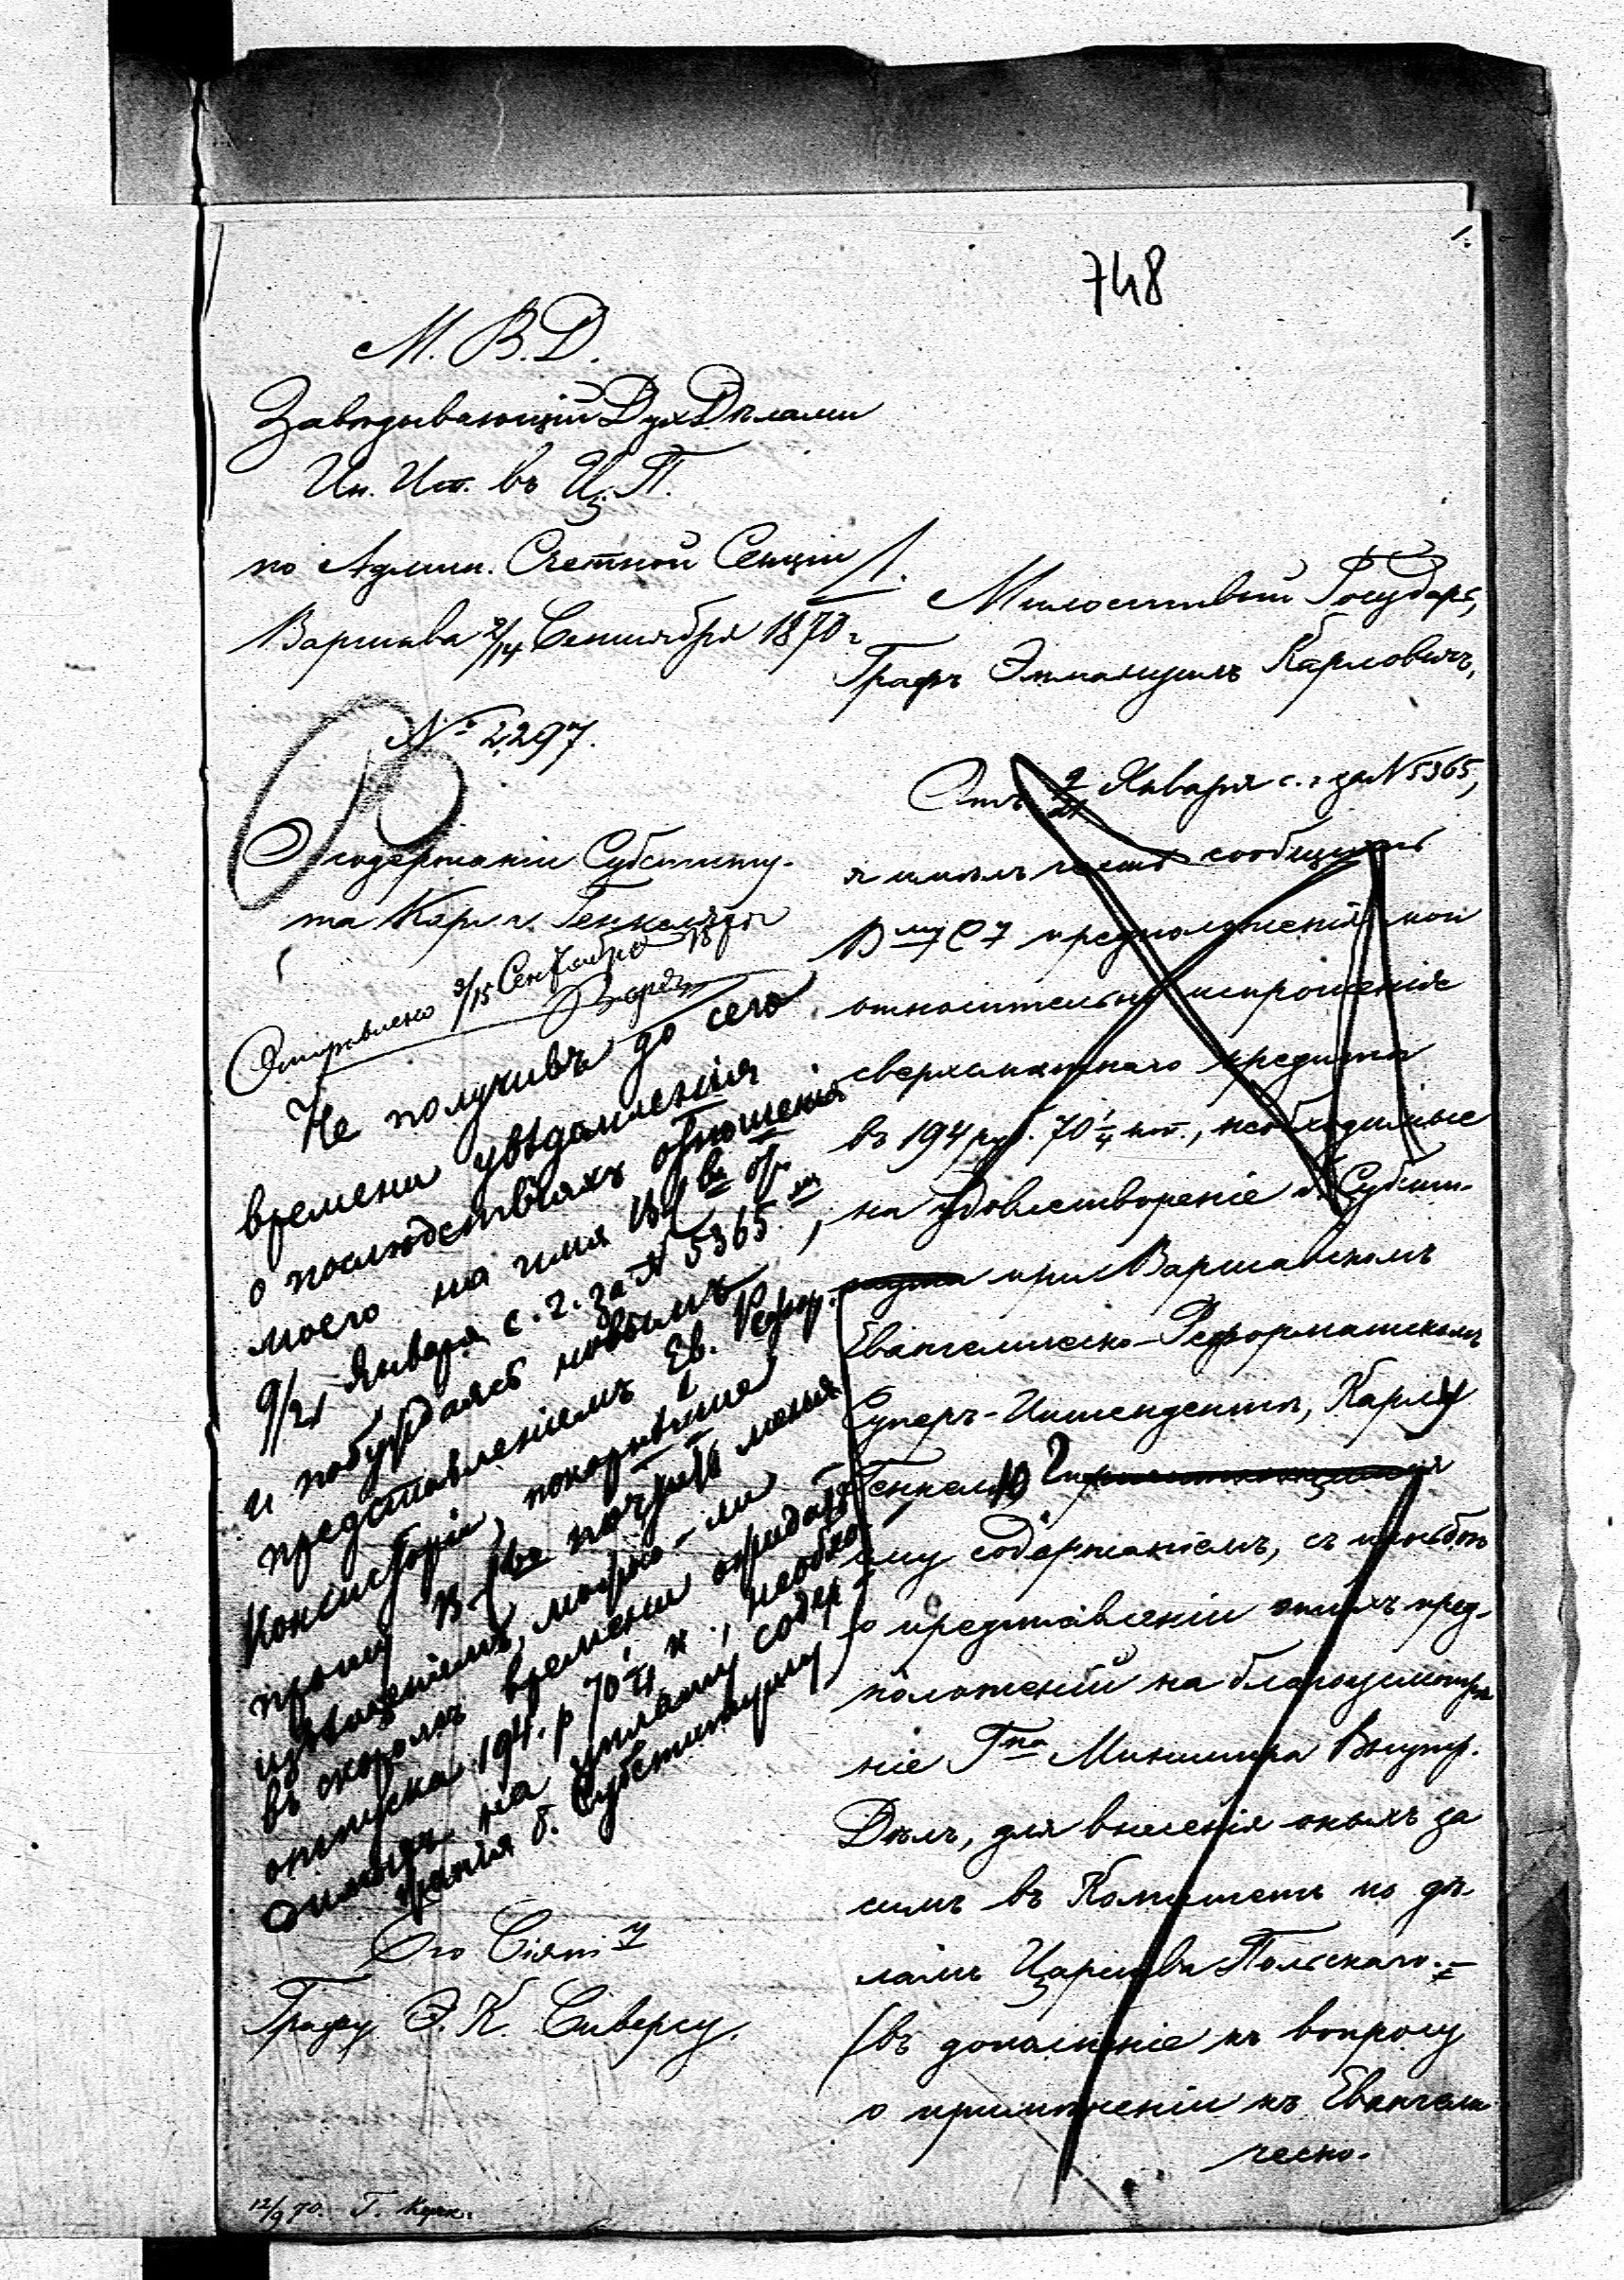 1.
748
М. В. Д.
Завѣдывающій Дух. Дѣлами
Ин. Исп. въ Ц. П.
по Админ. Счетной Секціи
Варшава 2/14 Сентября 1870 г.
№ 2297.
О содержаніи Субститу-
та Карла Генкеля
Отправлено 3/15 Сентября
Не получивъ до сего
времени увѣдомленія
о послѣдствіяхъ отношенія
моего на имя
9/21 Января с. г. за № 5365,
и побуждаясь новымъ
представленіемъ Ев. Реформ.
Консисторіи, покорнѣйше
прошу В. почтить меня
извѣщеніемъ, можно-ли
въ скоромъ времени ожидать
отпуска 194 р. 70 1/4 к., необхо-
димыхъ на уплату содер-
жанія б. Субституту
Его Сіят-у
Графу Э. К. Сиверсу.
12/9 70.
Милостивый Государь,
Графъ Эммануилъ Карловичъ,
Отъ 9/21 Января с. г. за № 5365,
я имѣлъ честь сообщить
В-му С предположенія мои
относительно испрошенія
сверхсмѣтнаго кредита
въ 194 руб. 70 1/4 коп., необходимые
на удовлетвореніе б. Субсти-
при Варшавскомъ
Евангелическо-Реформатскомъ
Суперъ-Интендентѣ, Карлу
Генкелю
ему содержаніемъ, съ просьбою
о представленіи этихъ пред-
положеній на благоусмотрѣ-
ніе Г-на Министра Внутр.
Дѣлъ, для внесенія оныхъ за
симъ въ Комитетъ по дѣ-
ламъ Царства Польскаго.
(въ дополненіе къ вопросу
о примѣненіи къ Евангели-
ческо-